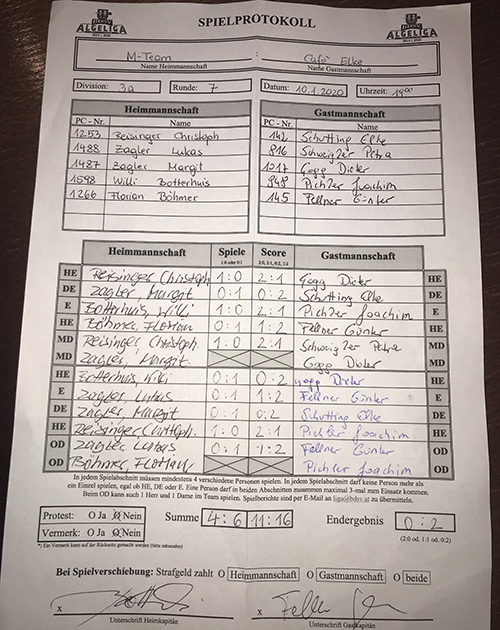 ALGELIGA SPIELPROTOKOLL ALGELIGA
M-Team : Café Elke
Name Heimmannschaft Name Gastmannschaft
Division: 3a Runde: 7 Datum: 10.1.2020 Uhrzeit: 19 00
Heimmannschaft Gastmannschaft
PC - Nr. Name PC - Nr. Name
1253 Reisinger Christoph 142 Schutting Elke
1488 Zagler Lukas 816 Schweigzer Petra
1487 Zagler Margit 1217 Gogg Dieter
1598 Willi Botterhuis 948 Pichler Joachim
1266 Florian Böhmer 145 Fellner Günter
Heimmannschaft Spiele Score Gastmannschaft
1:0 oder 0:1 2:0, 2:1, 0:2, 1:2
HE Reisinger, Christoph 1:0 2:1 Gogg Dieter HE
DE Zagler, Margit 0:1 0:2 Schutting Elke DE
E Botterhuis, Willi 1:0 2:1 Pichler Joachim E
HE Böhmer, Florian 0:1 1:2 Fellner Günter HE
MD Reisinger, Christoph. 1:0 2:1 Schweigzer Petra MD
MD Zagler, Margit. Gogg Dieter MD
HE Botterhuis, Willi 0:1 0:2 Gogg Dieter HE
E Zagler, Lukas 0:1 1:2 Fellner Günter E
DE Zagler, Margit 0:1 0:2 Schutting Elke DE
HE Reisinger, Christoph. 1:0 2:1 Pichler Joachim HE
OD Zagler, Lukas 0:1 1:2 Fellner Günter OD
OD Böhmer, Florian Pichler Joachim OD
In jedem Spielabschnitt müssen mindestens 4 verschiedene Personen spielen. In jedem Spielabschnitt darf keine Person mehr als
ein Einzel spielen, egal ob HE, DE oder E. Eine Person darf in beiden Abschnitten zusammen maximal 3-mal zum Einsatz kommen.
Beim OD kann auch 1 Herr und 1 Dame im Team spielen. Spielberichte sind per E-Mail an liga@bdsv.at zu übermitteln.
Protest: O Ja O Nein Summe 4:6 11:16 Endergebnis 0:2
Vermerk: O Ja O Nein (2:0 od. 1:1 od. 0:2)
*) Ein Vermerk kann auf der Rückseite gemacht werden (bitte ankreuzen)
Bei Spielverschiebung: Strafgeld zahlt O Heimmannschaft O Gastmannschaft O beide
x x
Unterschrift Heimkapitän Unterschrift Gastkapitän